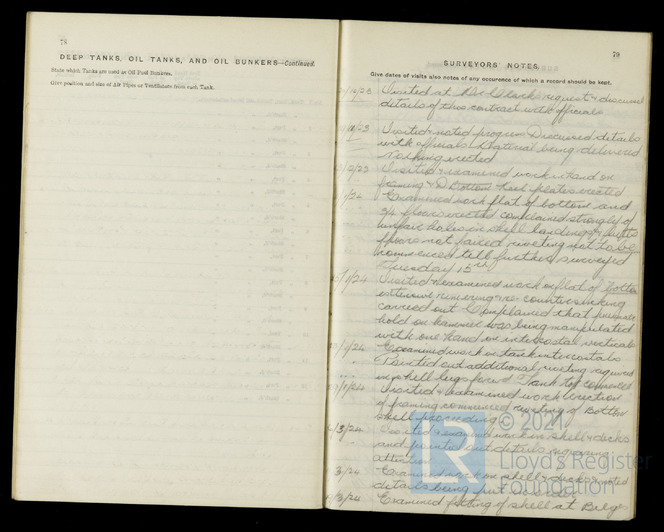 78
DEEP TANKS, OIL TANKS, AND OIL BUNKERS—Continued.
State which Tanks are used as Oil Fuel Bunkers.
Give position and size of Air Pipes or Ventilators from each Tank.
79
SURVEYORS' NOTES.
Give dates of visits also notes of any occurence of which a record should be kept.
/10/23 Visited at request & discussed
details of this contract with officials
/23 Visited & noted progress Discussed details
with officials Material being delivered
Nothing erected
/23 Visited & examined work in hand on
framing & D Bottom keel plates erected
/1/24 Examined work flat of bottom and
floors erected complained strongly of
unfair holes in shell landings & butts
floors not faired riveting not to be
commenced till further surveyed
Tuesday 15th
/1/24 Visited & examined work on flat of Bottom
extensive rimering & countersinking
carried out Complained that pneumatic
hold on hammer was being manipulated
with one hand on intercostal verticals
/1/24 Examined work on tank intercostals
Pointed out additional riveting required
in shell lugs forward Tank not commenced
/24 Visited & examined work erection
of framing commenced riveting of Bottom
shell proceeding
/3/24 Visited & examined work on shell & decks
and pointed out details requiring
attention
3/24 Examined work on shell & decks & noted
details being put in order
/3/24 Examined fitting of shell at Bilges
LR
© 2021
Lloyd's Register
Foundation